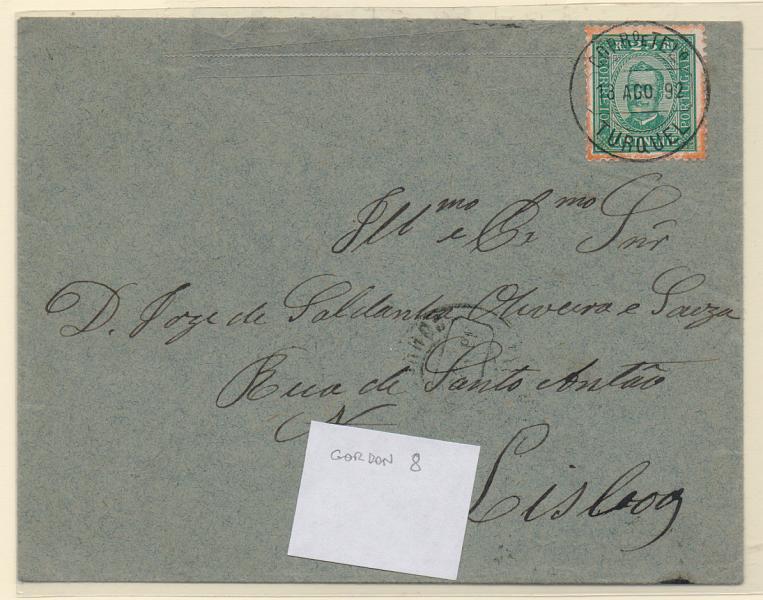 CORRº E TELº
18 AGO 92
TURQUEL
CORREIO
PORTUGAL
Illmo e Exmo Snr
D. Joze de Saldanha Oliveira e Souza
Rua de Santo Antão
N
Lisboa
GORDON 8